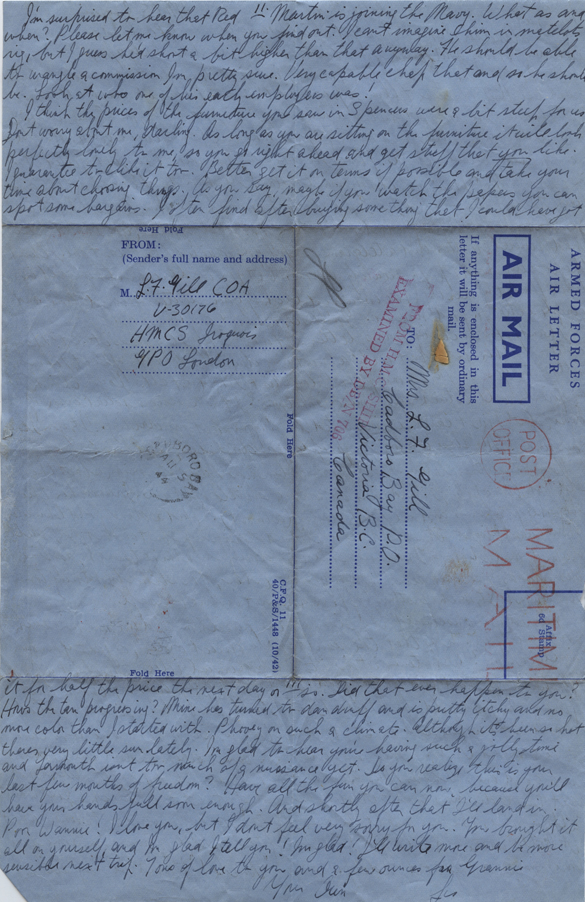 I'm surprised to hear that Red !! Martin is joining the Navy. What as and
when? Please let me know when you find out. I can't imagine him in matelots
rig, but I guess he'd short a bit higher than that anyway. He should be able
to wangle a commission I'm pretty sure. Very capable chap that and so he should
be. Look at who one of his early employers was!
I think the prices of the furniture you saw in Spencers were a bit steep for us
Don't worry about me, darling. As long as you are sitting on the furniture it'll look
perfectly lovely to me, so you go right ahead and get stuff that you like. I
guarantee to like it too. Better get it on terms if possible and take your
time about choosing things. As you say, maybe if you watch the papers you can
spot some bargains. I often find after buying something that I could have got
Fold Here
FROM:
(Sender's full name and address)
M. L. F. Gill COA
V-30176
HMCS Iroquois
GPO London
Fold Here
BORO BAY
AU
44
C.F.Q. 11
40/P&S/1448 (10/42)
Fold Here
ARMED FORCES
AIR LETTER
AIR MAIL
If anything is enclosed in this
letter it will be sent by ordinary
mail.
POST
OFFICE
MARITIM
MAIL
Affix
6d Stamp
FROM H.M.
EXAMINED BY
706
TO: Mrs. L. F. Gill
Cadboro Bay P.O.
Victoria B.C.
Canada
it for half the price the next day or !!! so. Did that ever happen to you?
How's the tan progressing? Mine has turned to dandruff and is pretty itchy and no
more color than I started with. Phooey on such a climate. Although it's been so hot
there's very little sun lately. I'm glad to hear you're having such a jolly time
and isn't too much of a nuissance yet. Do you realize this is your
last few months of freedom? Have all the fun you can now, because you'll
have your hands full soon enough. And shortly after that I'll land in.
Poor Wannie! I love you, but I don't feel very sorry for you. You brought it
all on yourself and I'm glad I tell you! I'm glad! I'll write more and be more
sensible next trip. Tons of love to you and a few ounces for Grannie
Your own
Les